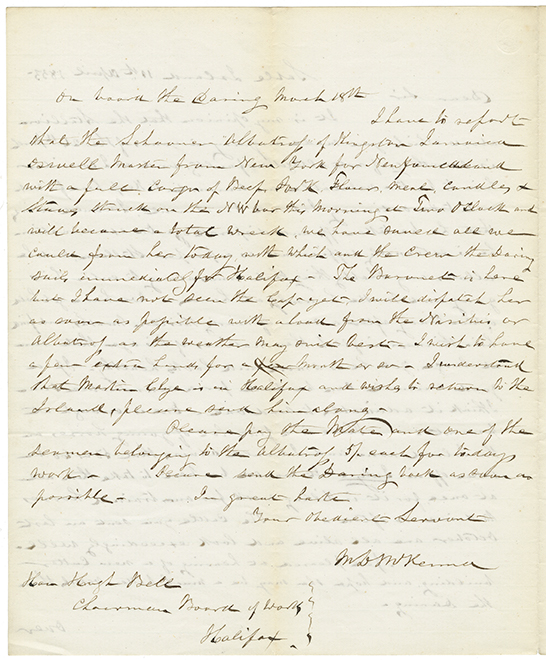 On board the Daring March 18th
I have to report
that the Schooner Albatros of Kingston Jamaica
Master from New York for Newfoundland
with a full Cargo of Beef Pork Flour, meal, candles &
struck on the NW bar this Morning at Two O'Clock and
will become a total wreck we have saved all we
could from her today with which and the Crew the Daring
sails immediately for Halifax - The Baronet is here
but I have not seen the Capt yet. I will dispatch her
as soon as possible with a load from the or
Albatros as the weather may suit best - I wish to have
a few extra hands for a month or so - I understand
that Martin Clye is in Halifax and wishes to return to the
Island, please send him along -
Please pay the Mate and one of the
seamen belonging to the Albatros 5/ each for todays
work - Please send the Daring back as soon as
possible - In great haste
Your Obedient Servant
M D McKenna
Hon Hugh Bell
Chairman Board of Works
Halifax